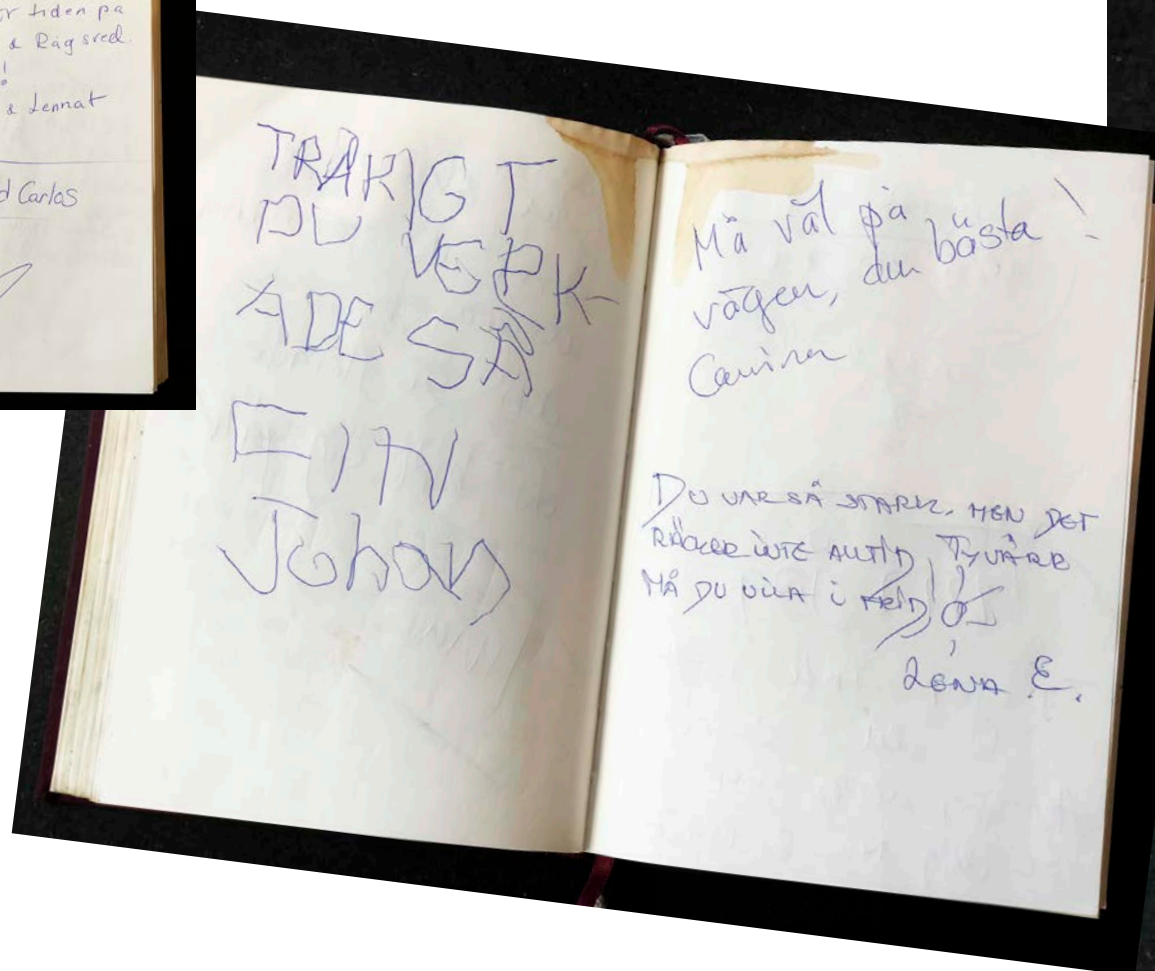 r tiden på
& Rågsved.
!
& Lennat
d Carlos
TRÅKIGT
DU VERK-
ADE SÅ
FIN
Johan
Må väl på
vägen, den bästa!
Carina
DU VAR SÅ STARK, MEN DET
RÄCKER INTE ALLTID, TYVÄRR
MÅ DU VILA i FRID,
LENA E.